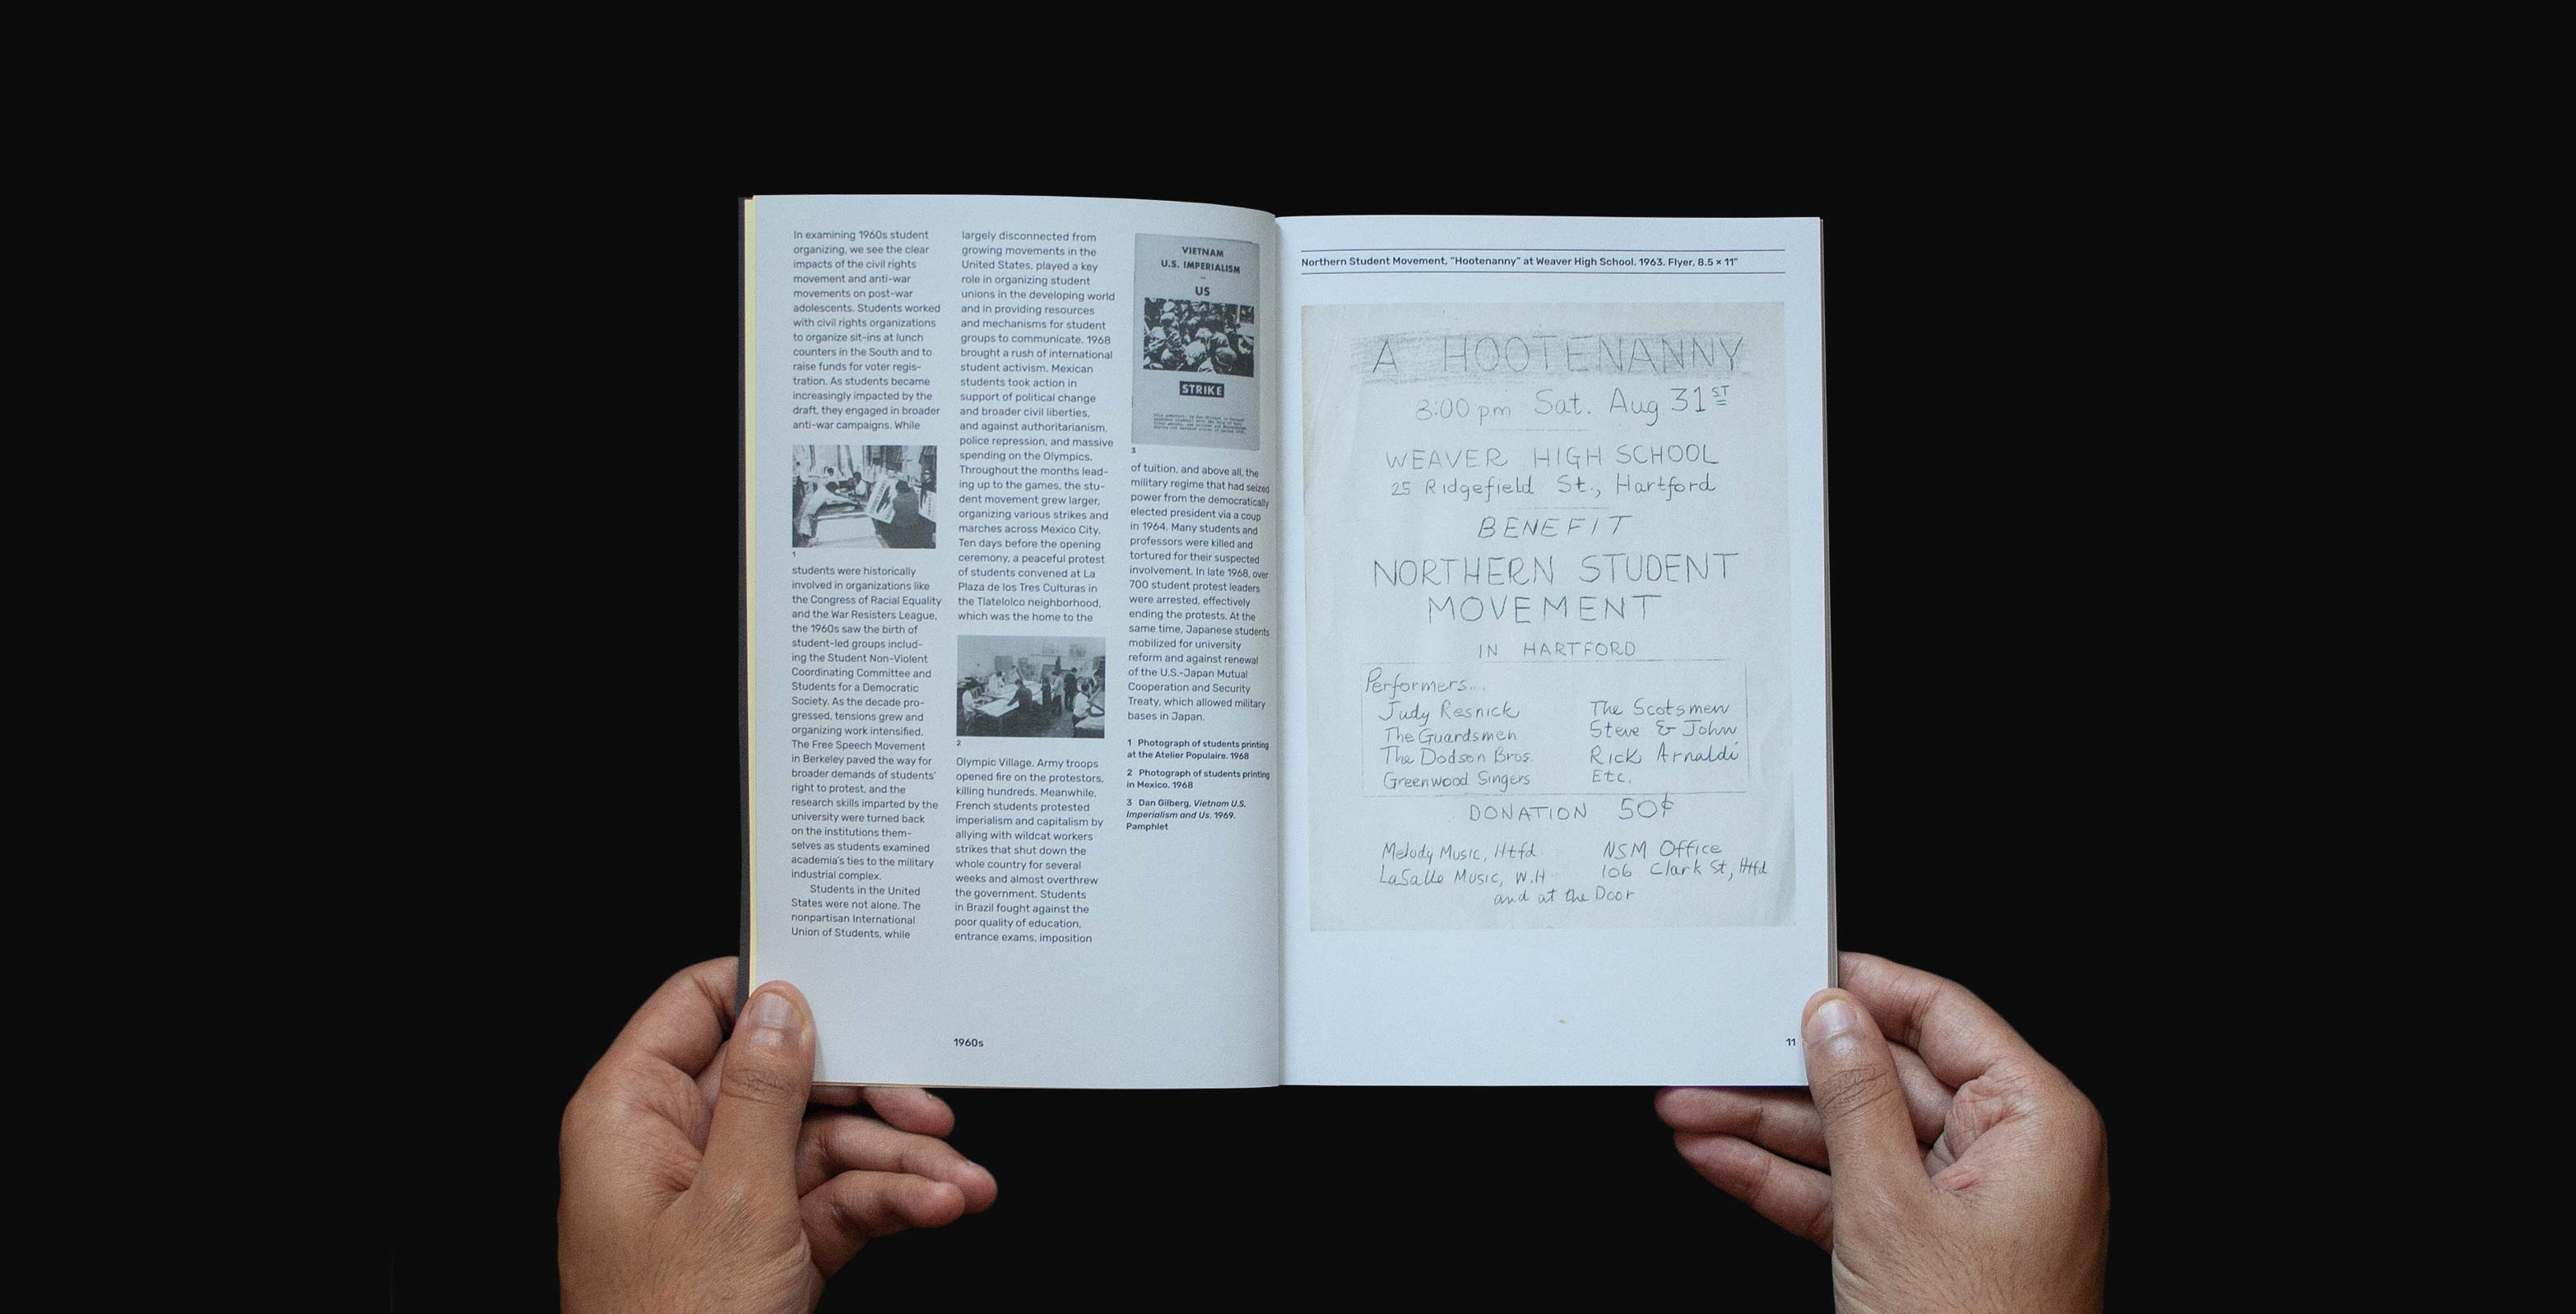 In examining 1960s student
organizing, we see the clear
impacts of the civil rights
movement and anti-war
movements on post-war
adolescents. Students worked
with civil rights organizations
to organize sit-ins at lunch
counters in the South and to
raise funds for voter regis-
tration. As students became
increasingly impacted by the
draft, they engaged in broader
anti-war campaigns. While
1
students were historically
involved in organizations like
the Congress of Racial Equality
and the War Resisters League,
the 1960s saw the birth of
student-led groups includ-
ing the Student Non-Violent
Coordinating Committee and
Students for a Democratic
Society. As the decade pro-
gressed, tensions grew and
organizing work intensified.
The Free Speech Movement
in Berkeley paved the way for
broader demands of students'
right to protest, and the
research skills imparted by the
university were turned back
on the institutions them-
selves as students examined
academia's ties to the military
industrial complex.
Students in the United
States were not alone. The
nonpartisan International
Union of Students, while
largely disconnected from
growing movements in the
United States, played a key
role in organizing student
unions in the developing world
and in providing resources
and mechanisms for student
groups to communicate. 1968
brought a rush of international
student activism. Mexican
students took action in
support of political change
and broader civil liberties,
and against authoritarianism,
police repression, and massive
spending on the Olympics.
Throughout the months lead-
ing up to the games, the stu-
dent movement grew larger,
organizing various strikes and
marches across Mexico City.
Ten days before the opening
ceremony, a peaceful protest
of students convened at La
Plaza de los Tres Culturas in
the Tlatelolco neighborhood,
which was the home to the
2
Olympic Village. Army troops
opened fire on the protestors,
killing hundreds. Meanwhile,
French students protested
imperialism and capitalism by
allying with wildcat workers
strikes that shut down the
whole country for several
weeks and almost overthrew
the government. Students
in Brazil fought against the
poor quality of education,
entrance exams, imposition
VIETNAM
U.S. IMPERIALISM
US
STRIKE
3
of tuition, and above all, the
military regime that had seized
power from the democratically
elected president via a coup
in 1964. Many students and
professors were killed and
tortured for their suspected
involvement. In late 1968, over
700 student protest leaders
were arrested, effectively
ending the protests. At the
same time, Japanese students
mobilized for university
reform and against renewal
of the U.S.-Japan Mutual
Cooperation and Security
Treaty, which allowed military
bases in Japan.
1 Photograph of students printing
at the Atelier Populaire. 1968
2 Photograph of students printing
in Mexico. 1968
3 Dan Gilberg. Vietnam U.S.
Imperialism and Us. 1969.
Pamphlet
1960s
Northern Student Movement, "Hootenanny" at Weaver High School. 1963. Flyer, 8.5 × 11"
A HOOTENANNY
8:00 pm Sat. Aug 31ST
WEAVER HIGH SCHOOL
25 Ridgefield St., Hartford
BENEFIT
NORTHERN STUDENT
MOVEMENT
IN HARTFORD
Performers...
Judy Resnick The Scotsmen
The Guardsmen Steve & John
The Dodson Bros. Rick Arnaldi
Greenwood Singers Etc.
DONATION 50¢
Melody Music, Htfd. NSM Office
LaSalle Music, W.H. 106 Clark St, Htfd
and at the Door
11